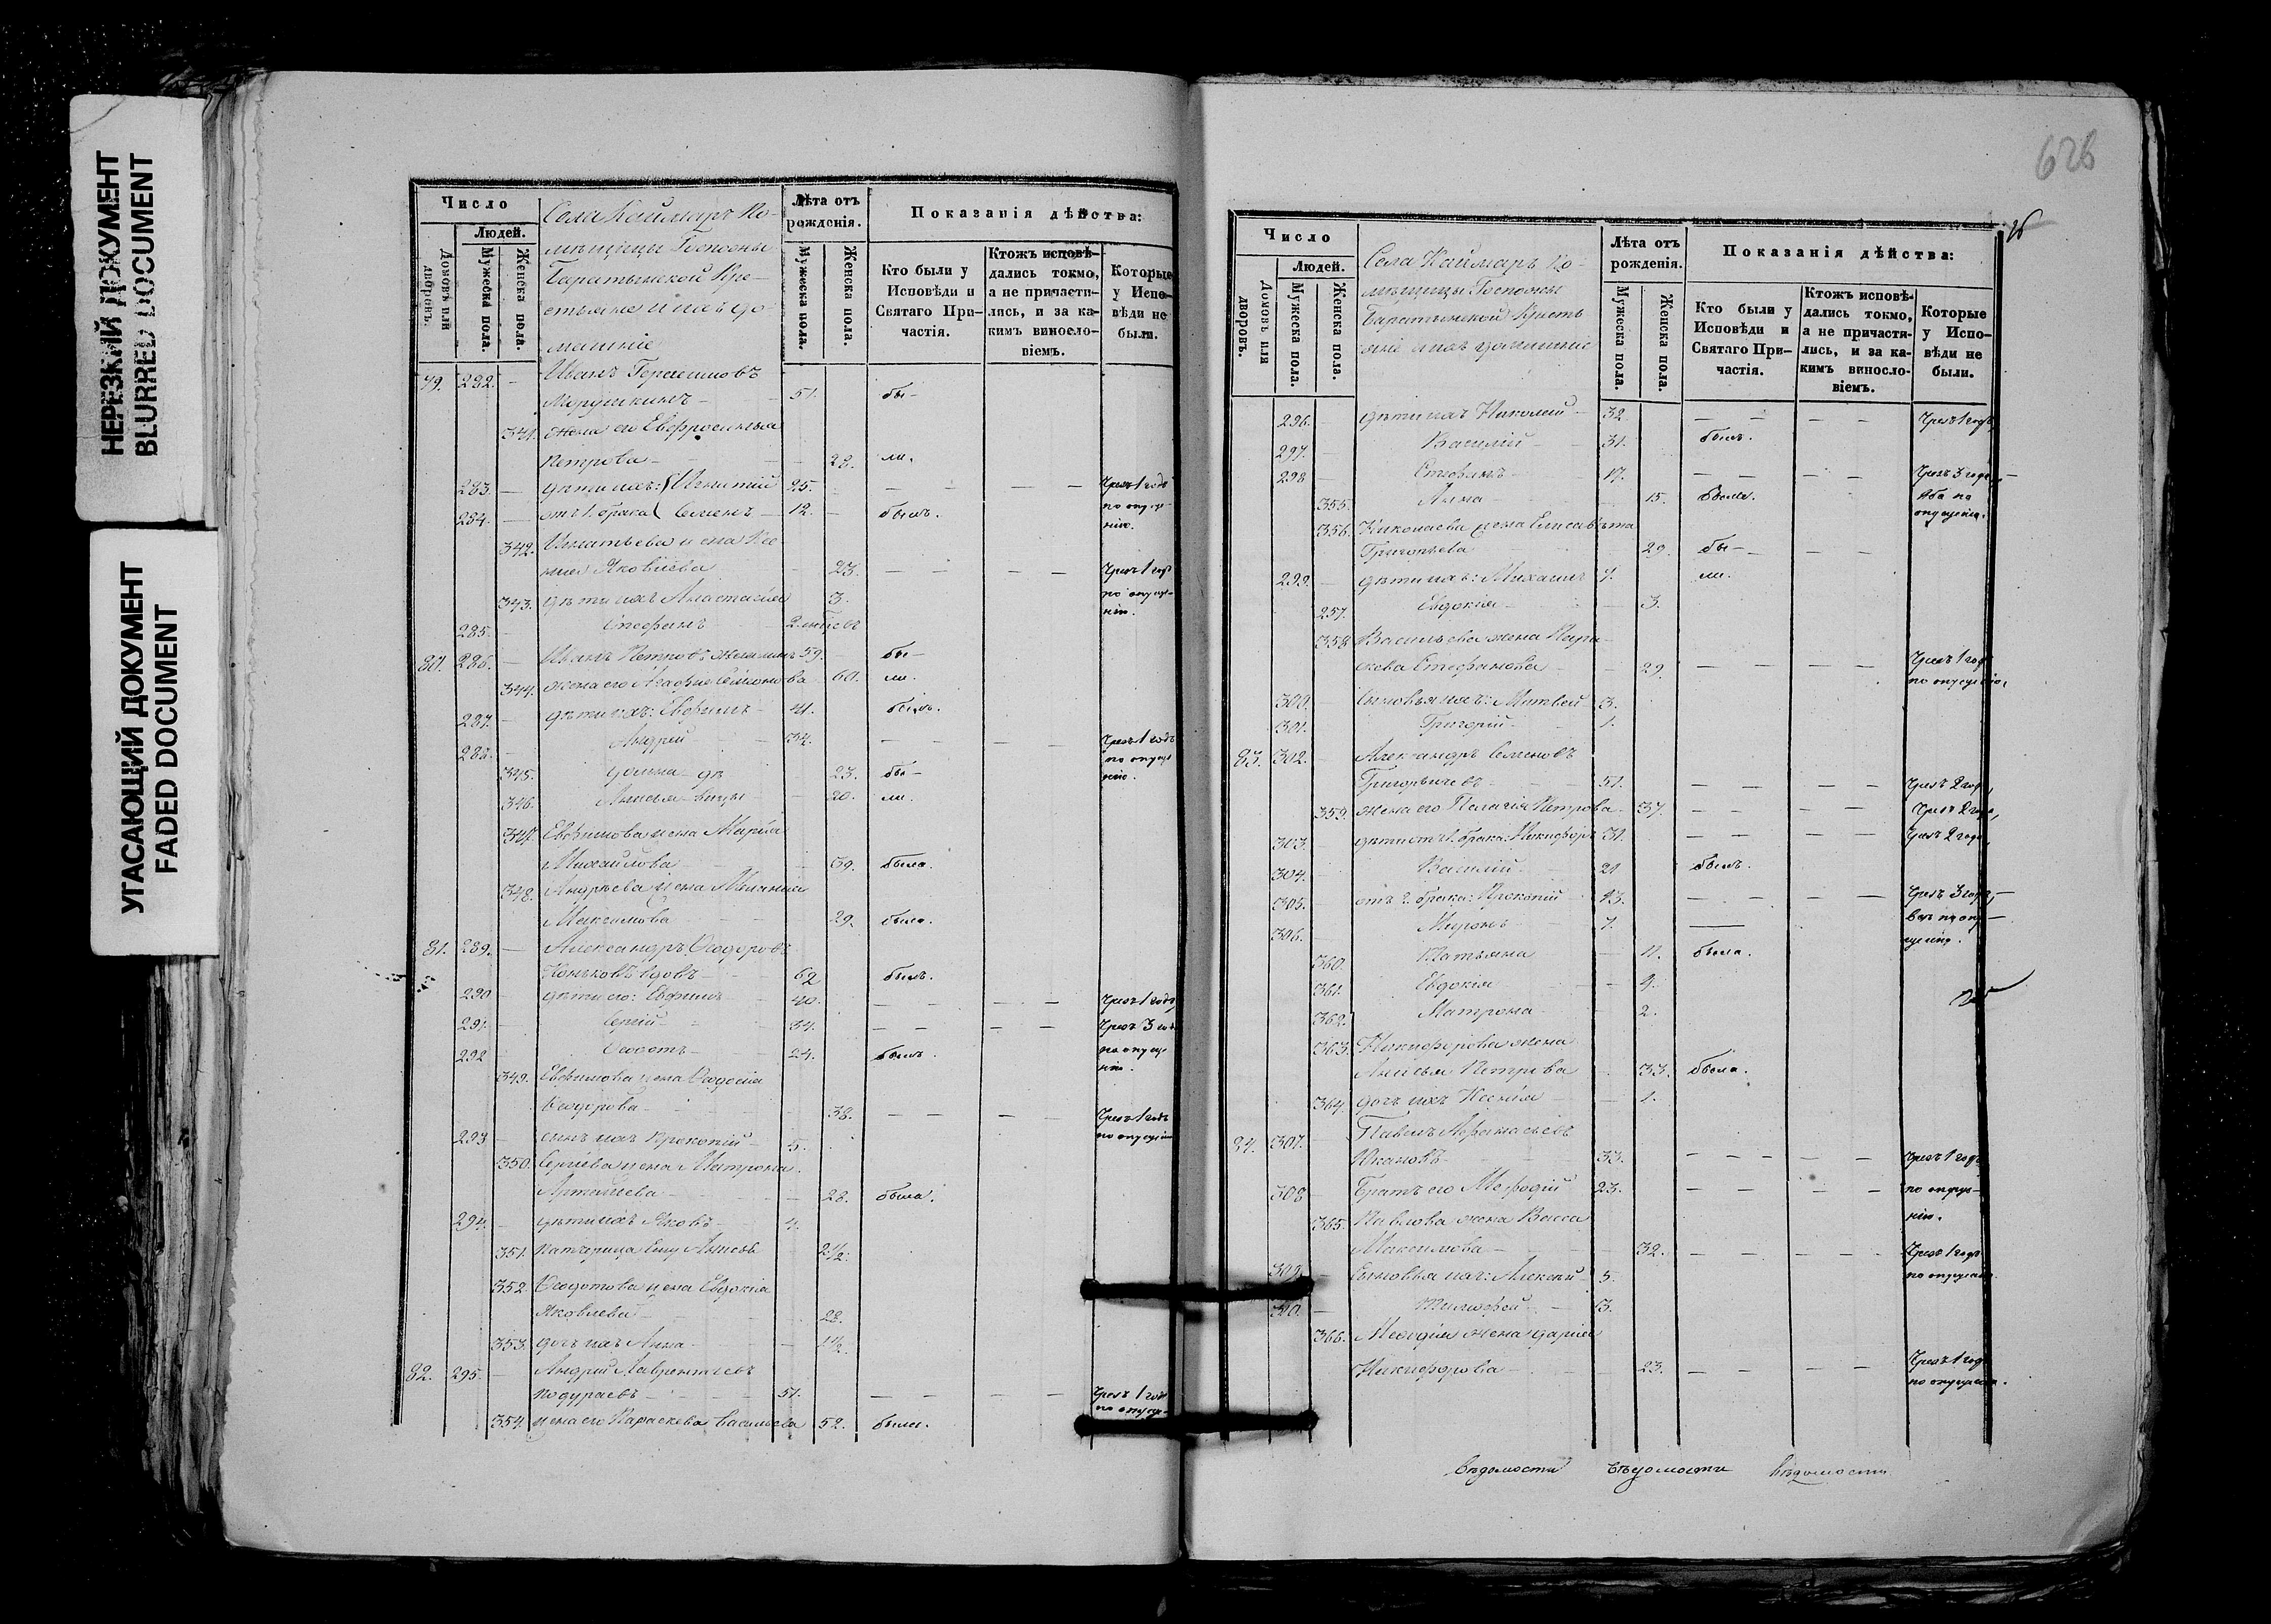 НЕРЕЗКИЙ ДОКУМЕНТ
BLURRED DOCUMENT
УГАСАЮЩИЙ ДОКУМЕНТ
FADED DOCUMENT
Число
Людей.
Домовъ или дворовъ.
Мужеска пола.
Женска пола.
Села Каймаръ По-
мѣщицы Госпожы
Баратынской Кре-
стьяне и ихъ до-
машніе
Лѣта отъ рожденія.
Мужеска пола.
Женска пола.
Показанія дѣйства:
Кто были у Исповѣди и Святаго При-частія.
Ктожъ исповѣ-дались токмо, а не причасти-лись, и за ка-кимъ винosло-віемъ.
Которые у Испо-вѣди не были.
79. 282. — Иванъ Герасимовъ
51. бы-
341. жена его Евфросинья
Петрова — 28. ли.
283. — дѣти ихъ: Игнатій 25. — — — — Чрезъ 1 годъ
284. — отъ 1. брака Семенъ — 12. — былъ. по опуще-нію.
342. Игнатьева жена Ксе-
нія Яковлева — 23. — — — — Чрезъ 1 годъ
343. дѣти ихъ Анастасія 3. по опуще-нію.
285. — Стефанъ
80. 286. — Иванъ Петровъ 59. — бы-
344. жена его Агафья Семенова 60. ли.
287. — дѣти ихъ: Евфимъ — 41. былъ.
288. — Андрей — 34. — — — — Чрезъ 1 годъ
345. Домна — дѣ 23. бы- по опуще-нію.
346. Анисья — вицы — 20. ли.
347. Евфимова жена Марія
Михайлова — 39. была.
348. Андреева жена Меланія
Максимова — 29. была.
81. 289. — Александръ Ѳеодоровъ
Коньковъ вдовъ — 62 былъ.
290 — дѣти его: Евфимъ — 40. — — — — Чрезъ 1 годъ
291. — Сергій — 34. — — — — Чрезъ 3 года
292 — Ѳеодотъ — 24. былъ. по опуще-нію.
349. Евфимова жена Ѳеодосія
Ѳеодорова — 38. — — — — Чрезъ 1 годъ
293 — сынъ ихъ Прокопій — 5. по опущенію
350. Сергіева жена Матрона
28. была.
294. — дѣти ихъ Яковъ — 4.
351. 2 1/2.
352. Ѳеодотова жена Евдокія
Яковлева — 23.
353. дочь ихъ Анна — 1 1/2.
82. 295. — Андрей Лаврентьевъ
Подураевъ — 51. — — — — Чрезъ 1 годъ
354. жена его Параскева Васильева 52. была. по опуще-
626
Число
Людей.
Домовъ или дворовъ.
Мужеска пола.
Женска пола.
Села Каймаръ По-
мѣщицы Госпожы
Баратынской Кресть
яне и ихъ домашніе
Лѣта отъ рожденія.
Мужеска пола.
Женска пола.
Показанія дѣйства:
Кто были у Исповѣди и Святаго При-частія.
Ктожъ исповѣ-дались токмо, а не причастя-лись, и за ка-кимъ винosло-віемъ.
Которые у Испо-вѣди не были.
296. — дѣти ихъ Николай — 32 — — — — Чрезъ 1 годъ,
297. — Василій — 31. былъ.
298 — Стефанъ — 17. — — — — Чрезъ 3 года, —
355. Анна — 15. была. оба по опущенію.
356. Николаева жена Елисавета
Григорьева 29. бы-
299. — дѣти ихъ: Михаилъ 7. ли.
257. Евдокія — 3.
358 Васильева жена Пара-
скева Стефанова — 29. — — — — Чрезъ 1 годъ
по опущенію,
300. — Сыновья ихъ: Матвей — 3.
301. Григорій — 1.
83. 302. — Александръ Семеновъ
Григорьичевъ — 51. — — — — Чрезъ 2 года,
359. жена его Пелагія Петрова 37. — — — — Чрезъ 2 года,
303. — дѣти отъ 1. брака: Никифоръ 31. — — — — Чрезъ 2 года,
304. — Василій — 21 былъ.
305. — отъ 2. брака: Прокопій 13. — — — — Чрезъ 3 года, —
306. — Миронъ — 7. — всѣ по опу-щенію.
360. Татьяна — 11. была.
361. Евдокія — 9.
362. Матрона — 2.
363. Никифорова жена
Анисья Петрова 33. была.
364. дочь ихъ Ксенія — 1.
84. 307. — Павелъ Аѳанасьевъ
33. — — — — Чрезъ 1 годъ
308 — Братъ его Меѳодій 23. — — — — по опуще-нію.
365. Павлова жена Васса
Максимова — 32. — — — — Чрезъ 1 годъ
309. — Сыновья ихъ: Алексей — 5. по опущенію.
310. — Тимофей — 3.
366. Меѳодія жена Дарія
Никифорова — 23. — — — — Чрезъ 1 годъ
по опущенію.
вѣдомости вѣдомости вѣдомости